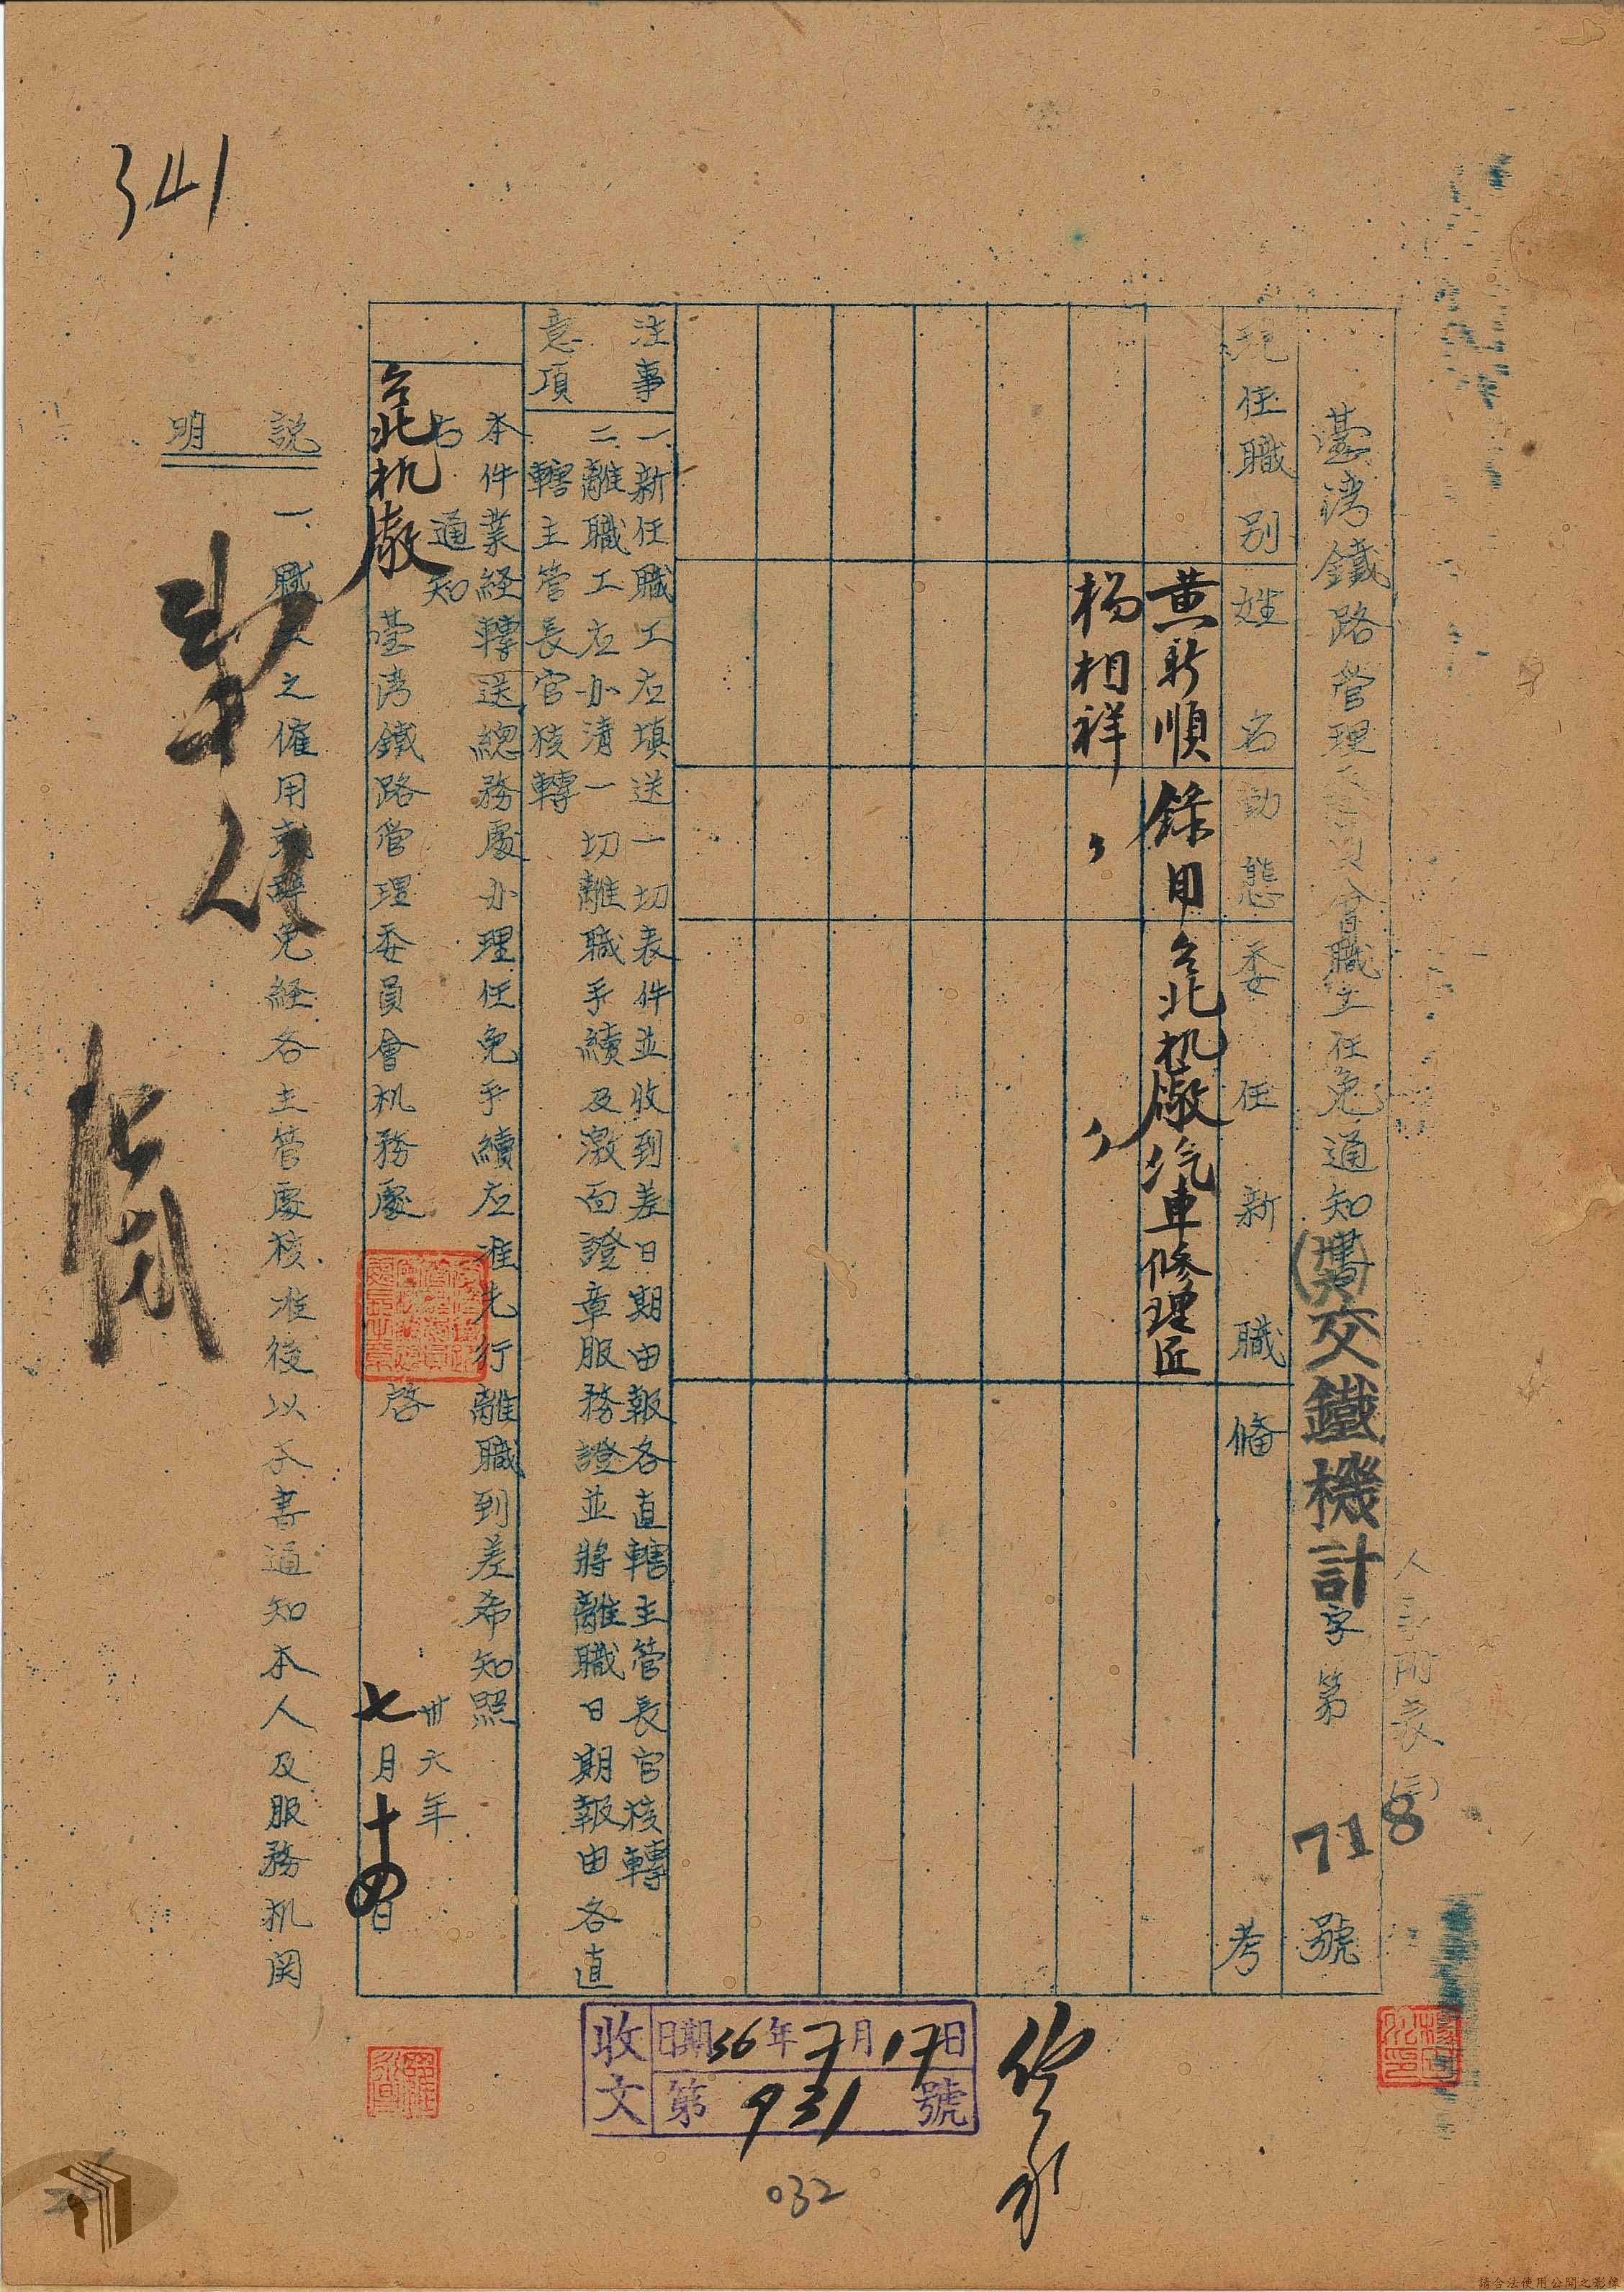 人事附表(三)
臺灣鐵路管理委員會職工任免通知書交鐵機計字第718號
現任職別 姓名 動態 委任新職 備考
黃新順 錄用 台北机廠汽車修理匠
楊相祥 〃 〃
注意事項
一、新任職工应填送一切表件並收到差日期由報各直轄主管長官核轉
二、離職工应办清一切離職手續及繳回證章服務證並將離職日期報由各直
轄主管長官核轉
本件業経轉送總務處办理任免手續应准先行離職到差希知照
右通知
台北机廠
臺灣鐵路管理委員會机務處 啓
卅六年
七月十四日
說明
一、職工之僱用或辭免経各主管處核准後以本書通知本人及服務机関
341
收文
日期36年7月17日
第931號
032
請合法使用公開之影像